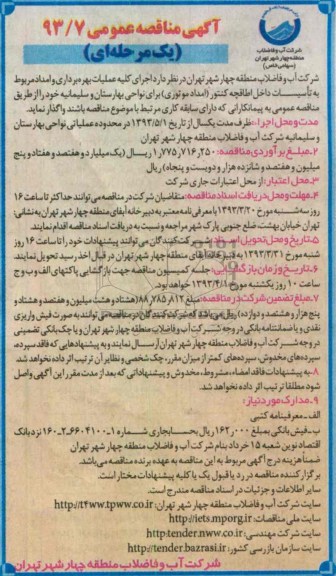 آگهی مناقصه عمومی ۹۳/۷
(یک مرحله‌ای)
شرکت آب و فاضلاب
منطقه چهار شهر تهران
(سهامی خاص)
شرکت آب و فاضلاب منطقه چهار شهر تهران در نظر دارد اجرای کلیه عملیات بهره‌برداری و امداد مربوط
به تأسیسات داخل اطاقچه کنتور (امداد موتوری) برای نواحی بهارستان و سلیمانیه خود را از طریق
مناقصه عمومی به پیمانکارانی که دارای سابقه کاری مرتبط با موضوع مناقصه باشند واگذار نماید.
مدت و محل اجرا: ظرف مدت یکسال از تاریخ ۱۳۹۳/۵/۱ در محدوده عملیاتی نواحی بهارستان
و سلیمانیه شرکت آب و فاضلاب منطقه چهار شهر تهران
۲-مبلغ برآوردی مناقصه: ۱,۷۷۵,۷۱۶,۲۵۰ ریال (یک میلیارد و هفتصد و هفتاد و پنج
میلیون و هفتصد و شانزده هزار و دویست و پنجاه) ریال
۳-محل اعتبار: از محل اعتبارات جاری شرکت
۴-مهلت و محل دریافت اسناد مناقصه: متقاضیان شرکت در مناقصه می‌توانند حداکثر تا ساعت ۱۶
روز سه‌شنبه مورخ ۱۳۹۳/۳/۲۰ با معرفی نامه معتبر به دبیرخانه آبفای منطقه چهار شهر تهران به نشانی:
تهران خیابان بهشت ضلع جنوبی پارک شهر مراجعه و نسبت به دریافت اسناد مناقصه اقدام نمایند.
۵-تاریخ و محل تحویل اسناد: شرکت‌کنندگان می‌توانند پیشنهادات خود را تا ساعت ۱۶ روز
شنبه مورخ ۱۳۹۳/۳/۳۱ به دبیرخانه آبفای منطقه چهار شهر تهران در قبال اخذ رسید تحویل نمایند.
۶-تاریخ و زمان بازگشایی: جلسه کمیسیون مناقصه جهت بازگشایی پاکتهای الف و ب و ج
ساعت ۱۰ روز یکشنبه مورخ ۱۳۹۳/۴/۱ خواهد بود.
۷-مبلغ تضمین شرکت در مناقصه: مبلغ ۸۸,۷۸۵,۸۱۲ (هشتاد و هشت میلیون و هفتصد و هشتاد و
پنج هزار و هشتصد و دوازده) ریال می‌باشد که شرکت کنندگان در مناقصه می‌توانند به صورت فیش واریزی
نقدی و یا ضمانتنامه بانکی در وجه شرکت آب و فاضلاب منطقه چهار شهر تهران و یا چک بانکی تضمینی
در وجه شرکت آب و فاضلاب منطقه چهار شهر تهران ارسال نمایند و به پیشنهادهایی که فاقد سپرده،
سپرده‌های مخدوش، سپرده‌های کمتر از میزان مقرر، چک شخصی و نظایر آن ترتیب اثر داده نخواهد شد.
۸-به پیشنهادات فاقد امضاء، مشروط، مخدوش و پیشنهاداتی که بعد از مدت مقرر این آگهی واصل
شود مطلقاً ترتیب اثر داده نخواهد شد.
۹-مدارک مورد نیاز:
الف-معرفینامه کتبی
ب-فیش بانکی بمبلغ ۱۶۲,۰۰۰ ریال بحساب جاری شماره ۱-۶۶۰۴۱۰۰-۲-۱۶۰ نزد بانک
اقتصاد نوین شعبه ۱۵ خرداد بنام شرکت آب و فاضلاب منطقه چهار شهر تهران
ضمناً هزینه درج آگهی مربوط به این مناقصه به عهده برنده مناقصه می‌باشد.
برگزار کننده مناقصه در رد یا قبول یک یا کلیه پیشنهادات مختار است.
سایر اطلاعات و جزئیات در اسناد مناقصه مندرج است.
سایت شرکت آب و فاضلاب منطقه چهار شهر تهران: http://t4ww.tpww.co.ir
سایت ملی مناقصات: http://iets.mporg.ir
سایت شرکت مهندسی: http:tender.nww.co.ir
سایت سازمان بازرسی کشور: http://tender.bazrasi.ir
شرکت آب و فاضلاب منطقه چهار شهر تهران